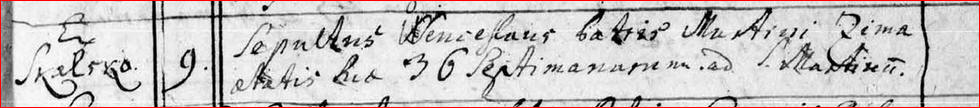 Ex
Skalsko. 9. Sepultus Wenceslaus patris Martini Zima
ætatis suæ 36 Septimanarum. ad S. Martinū.